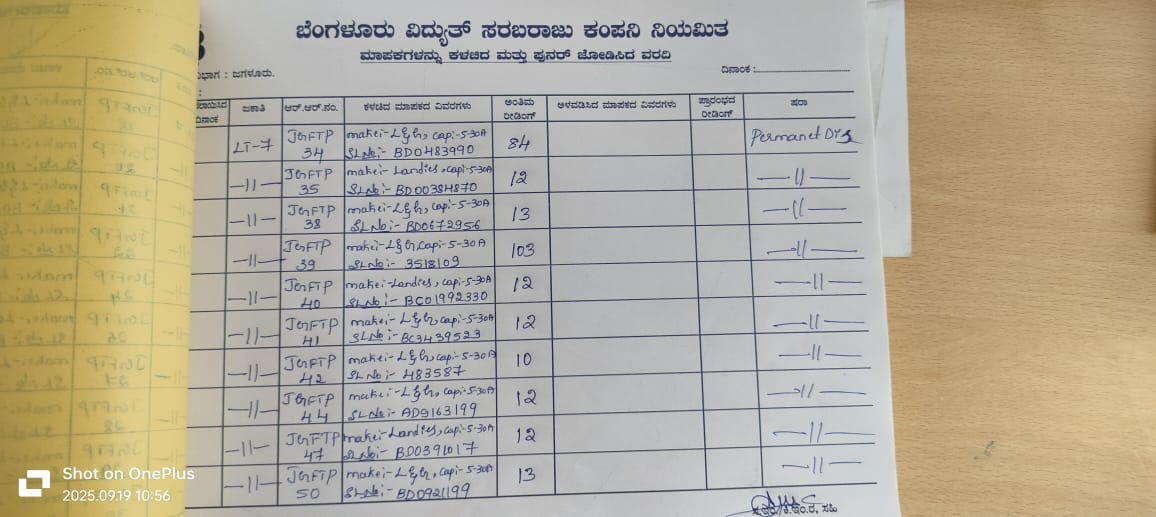 ಬೆಂಗಳೂರು ವಿದ್ಯುತ್ ಸರಬರಾಜು ಕಂಪನಿ ನಿಯಮಿತ
ಮಾಪಕಗಳನ್ನು ಕಳಚಿದ ಮತ್ತು ಪುನರ್ ಜೋಡಿಸಿದ ವರದಿ
ವಿಭಾಗ : ಜಗಳೂರು. ದಿನಾಂಕ :
ದಿನಾಂಕ ಜಕಾತಿ ಆರ್.ಆರ್.ನಂ. ಕಳಚಿದ ಮಾಪಕದ ವಿವರಗಳು ಅಂತಿಮ ರೀಡಿಂಗ್ ಅಳವಡಿಸಿದ ಮಾಪಕದ ವಿವರಗಳು ಪ್ರಾರಂಭದ ರೀಡಿಂಗ್ ಷರಾ
LT-7 JGFTP make:-L&G, Capi:-5-30A 84 Permanet
34 SL.No:- BD0483990
-11- JGFTP make:- Landies, Capi:-5-30A 12 -11-
35 SL.No:- BD00384870
-11- JGFTP make:-L&G, Capi:-5-30A 13 -11-
38 SL.No:- BD0672956
-11- JGFTP make:-L&G, Capi:-5-30A 103 -11-
39 SL.No:- 3518109
-11- JGFTP make:-Landies, Capi:-5-30A 12 -11-
40 SL.No:- BC01992330
-11- JGFTP make:-L&G, Capi:-5-30A 12 -11-
41 SL.No:- BC3439523
-11- JGFTP make:-L&G, Capi:-5-30A 10 -11-
42 SL.No:- 483587
-11- JGFTP make:-L&G, Capi:-5-30A 12 -11-
44 SL.No:- AD9163199
-11- JGFTP make:-Landies, Capi:-5-30A 12 -11-
47 SL.No:- BD0391017
-11- JGFTP make:-L&G, Capi:-5-30A 13 -11-
50 SL.No:- BD0921199
Shot on OnePlus
2025.09.19 10:56